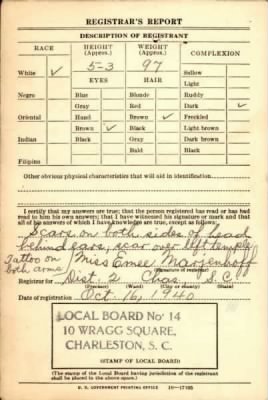 REGISTRAR'S REPORT
DESCRIPTION OF REGISTRANT
RACE HEIGHT (Approx.) WEIGHT (Approx.) COMPLEXION
White ✓ 5-3 97 Sallow
EYES HAIR Light
Negro Blue Blonde Ruddy
Gray Red Dark ✓
Oriental Hazel Brown ✓ Freckled
Brown ✓ Black Light brown
Indian Black Gray Dark brown
Bald Black
Filipino
Other obvious physical characteristics that will aid in identification
I certify that my answers are true; that the person registered has read or has had
read to him his own answers; that I have witnessed his signature or mark and that
all of his answers of which I have knowledge are true, except as follows:
Scars on both sides of head
behind ears, scar over left temple
Tattoo on both arms
Miss Emse Marjenhoff
(Signature of registrar)
Registrar for Dist. 2 Chas, S.C.
(Precinct) (Ward) (City or county) (State)
Date of registration Oct. 16, 1940
LOCAL BOARD No. 14
10 WRAGG SQUARE,
CHARLESTON, S. C.
(STAMP OF LOCAL BOARD)
(The stamp of the Local Board having jurisdiction of the registrant
shall be placed in the above space.)
U. S. GOVERNMENT PRINTING OFFICE 16—17105